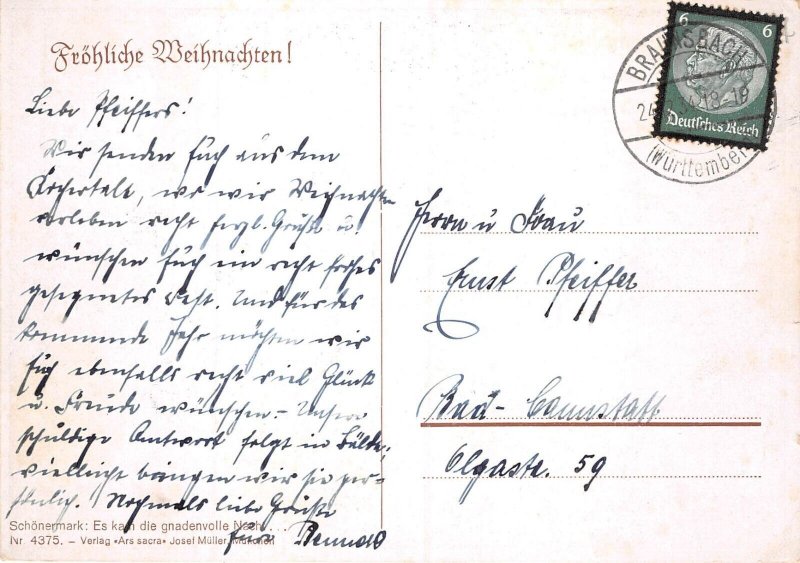 Fröhliche Weihnachten!
Liebe Pfeiffers!
Wir senden Euch aus dem
Kochertale, wo wir Weihnachten
verleben recht herzl. Grüße u.
wünschen Euch ein recht frohes
gesegnetes Fest. Und für das
kommende Jahr möchten wir
Euch ebenfalls recht viel Glück
u. Freude wünschen.- Unsere
schuldige Antwort folgt in Bälde,
vielleicht bringen wir sie per-
sönlich. Nochmals liebe Grüße
Eure
Schönermark: Es kam die gnadenvolle Nacht
Nr 4375. – Verlag «Ars sacra» Josef Müller, München
6 6
Deutsches Reich
BRAUNSBACH
24 18-19
(Württemberg)
Herrn u Frau
Ernst Pfeiffer
Bad-Cannstatt
Olgastr. 59